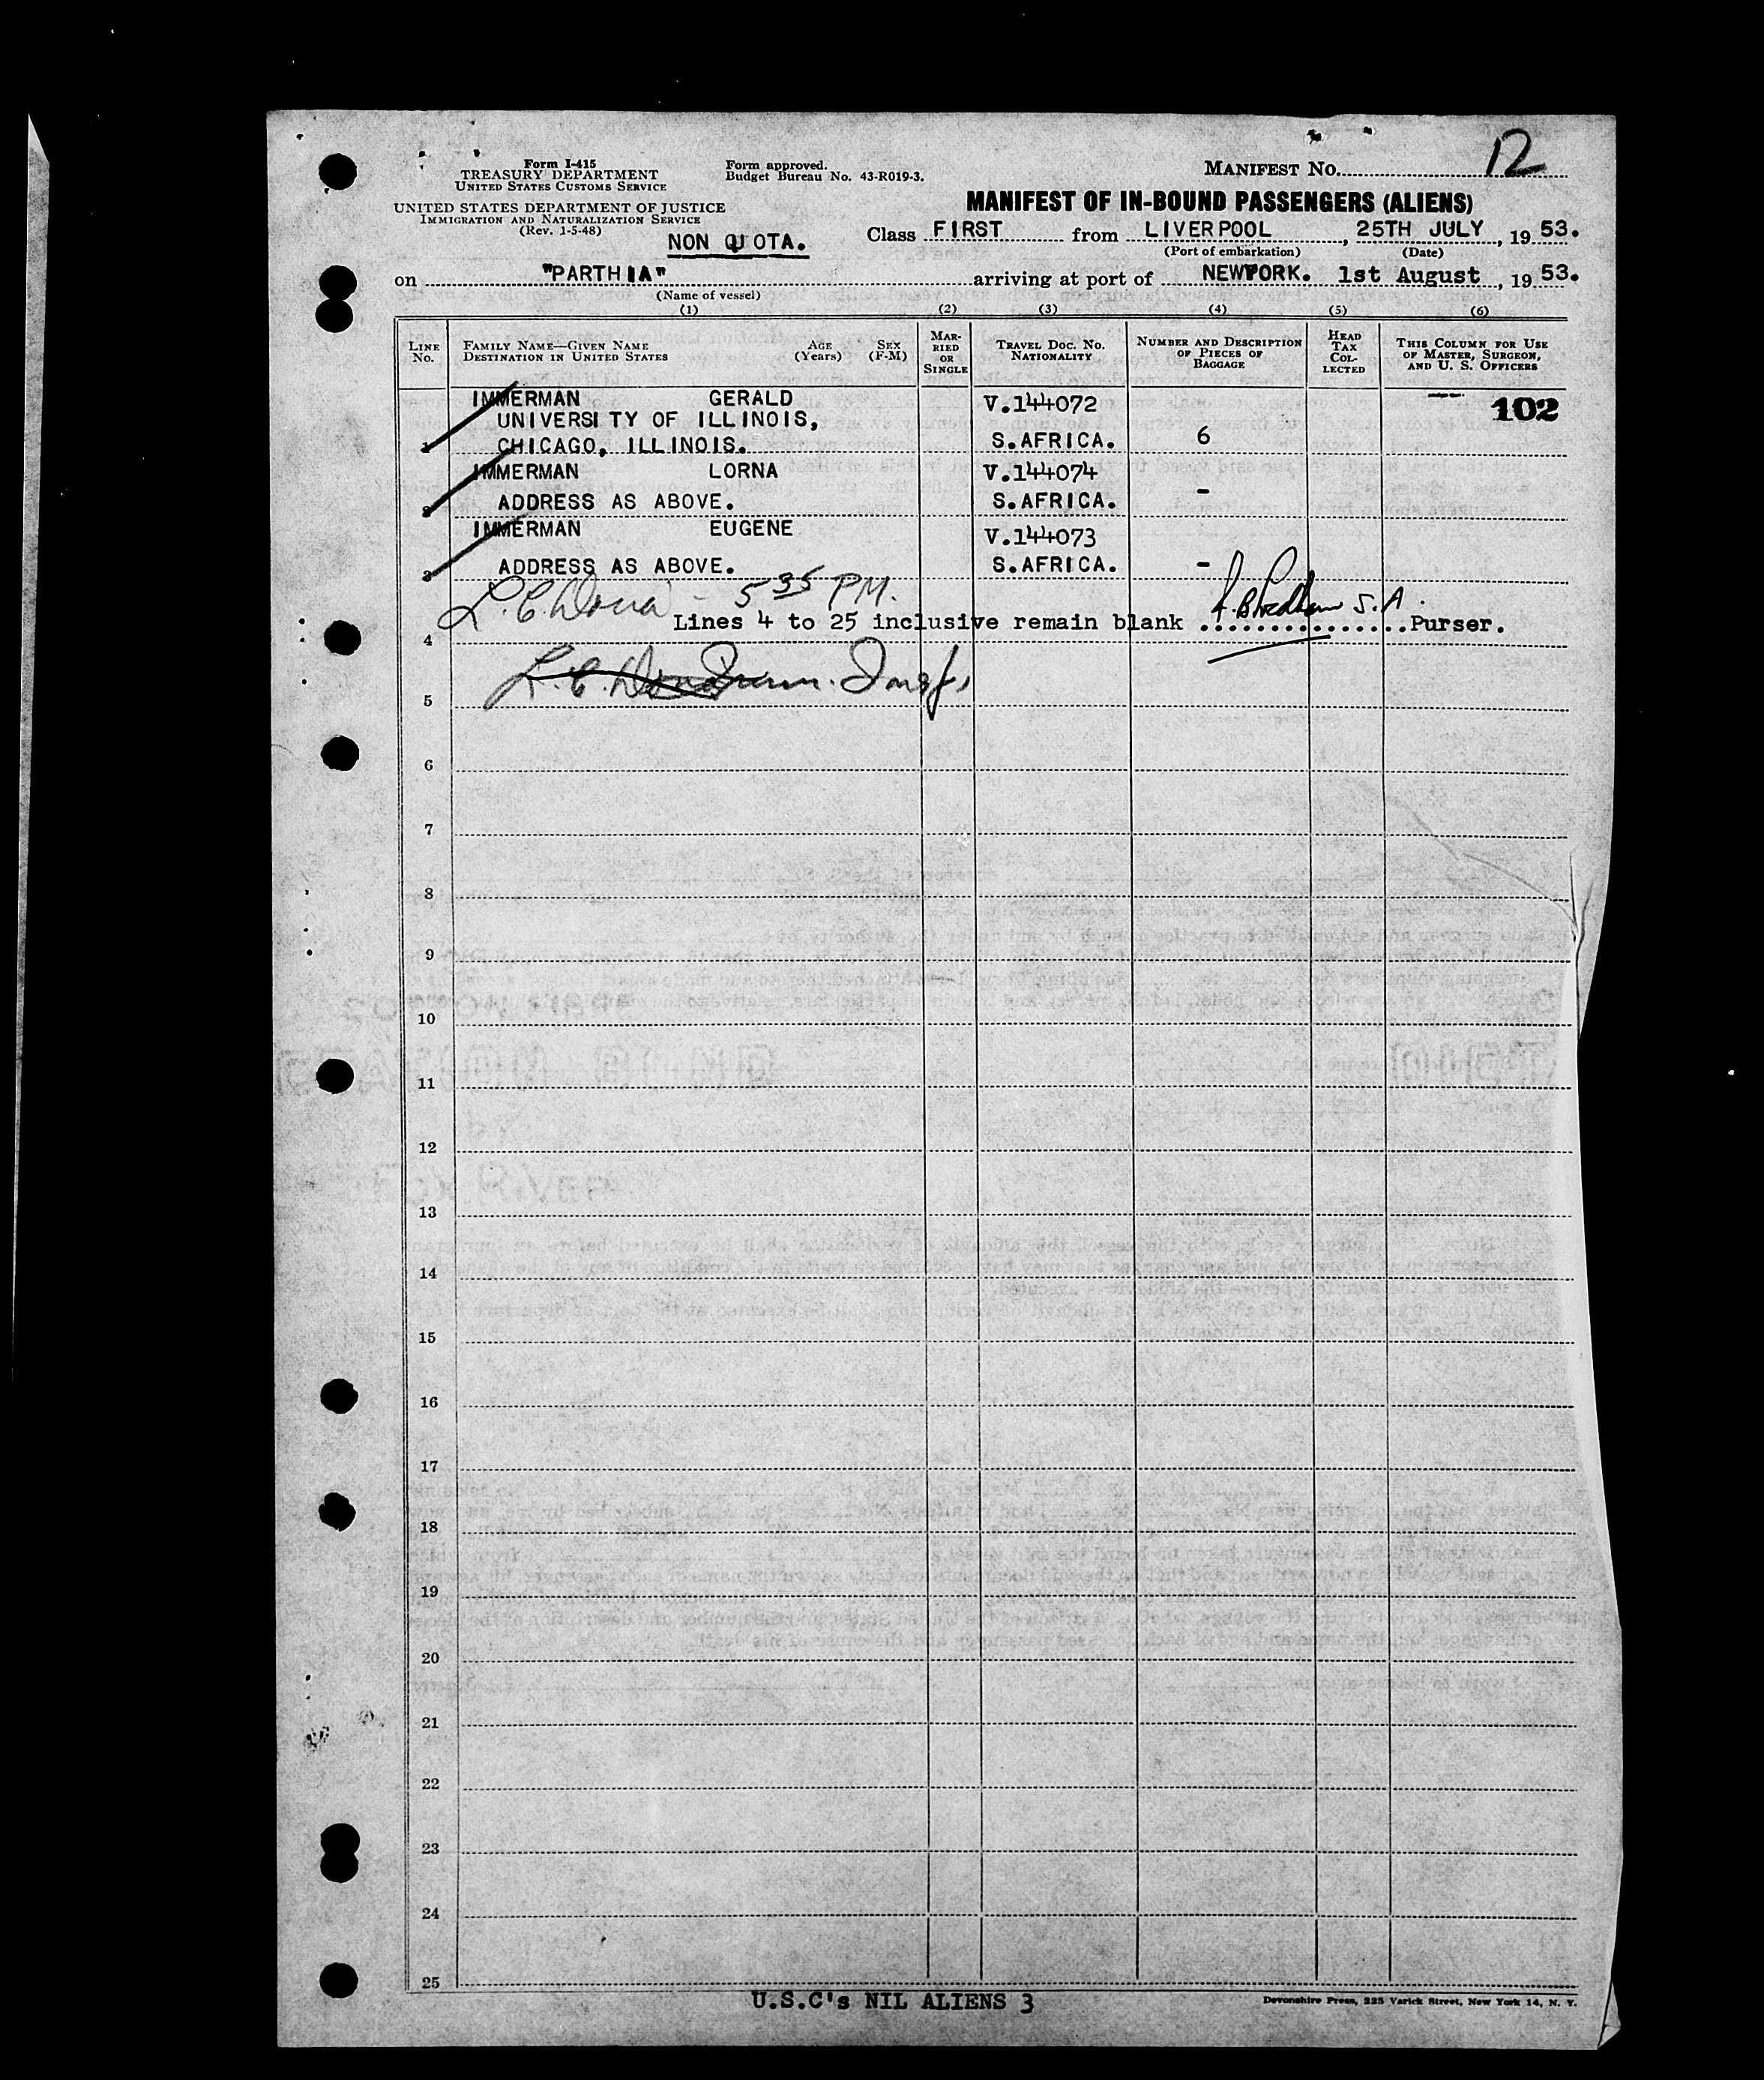 12
Form I-415
TREASURY DEPARTMENT
UNITED STATES CUSTOMS SERVICE
Form approved.
Budget Bureau No. 43-R019-3.
MANIFEST No.
UNITED STATES DEPARTMENT OF JUSTICE
IMMIGRATION AND NATURALIZATION SERVICE
(Rev. 1-5-48)
MANIFEST OF IN-BOUND PASSENGERS (ALIENS)
NON QUOTA.
Class FIRST from LIVERPOOL, 25TH JULY, 19 53.
(Port of embarkation) (Date)
on "PARTHIA" arriving at port of NEWYORK. 1st August, 19 53.
(Name of vessel)
(1) (2) (3) (4) (5) (6)
LINE No.
FAMILY NAME—GIVEN NAME
DESTINATION IN UNITED STATES
AGE (Years)
SEX (F-M)
MARRIED OR SINGLE
TRAVEL DOC. No.
NATIONALITY
NUMBER AND DESCRIPTION OF PIECES OF BAGGAGE
HEAD TAX COLLECTED
THIS COLUMN FOR USE OF MASTER, SURGEON, AND U. S. OFFICERS
IMMERMAN GERALD V.144072 102
UNIVERSITY OF ILLINOIS,
1 CHICAGO, ILLINOIS. S.AFRICA. 6
IMMERMAN LORNA V.144074
2 ADDRESS AS ABOVE. S.AFRICA. -
IMMERMAN EUGENE V.144073
3 ADDRESS AS ABOVE. S.AFRICA. -
5 35 PM.
Lines 4 to 25 inclusive remain blank ...............Purser.
4
5
6
7
8
9
10
11
12
13
14
15
16
17
18
19
20
21
22
23
24
25
U.S.C's NIL ALIENS 3
Devonshire Press, 225 Varick Street, New York 14, N. Y.